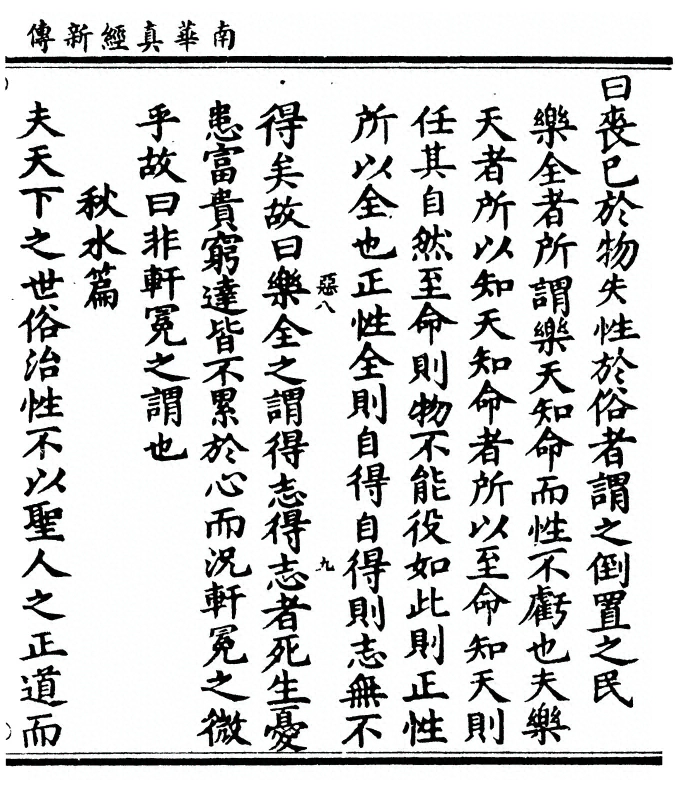 南華真經新傳
曰喪已於物失性於俗者謂之倒置之民
樂全者所謂樂天知命而性不虧也夫樂
天者所以知天知命者所以至命知天則
任其自然至命則物不能役如此則正性
所以全也正性全則自得自得則志無不
惡八 九
得矣故曰樂全之謂得志得志者死生憂
患富貴窮達皆不累於心而況軒冕之微
乎故曰非軒冕之謂也
秋水篇
夫天下之世俗治性不以聖人之正道而